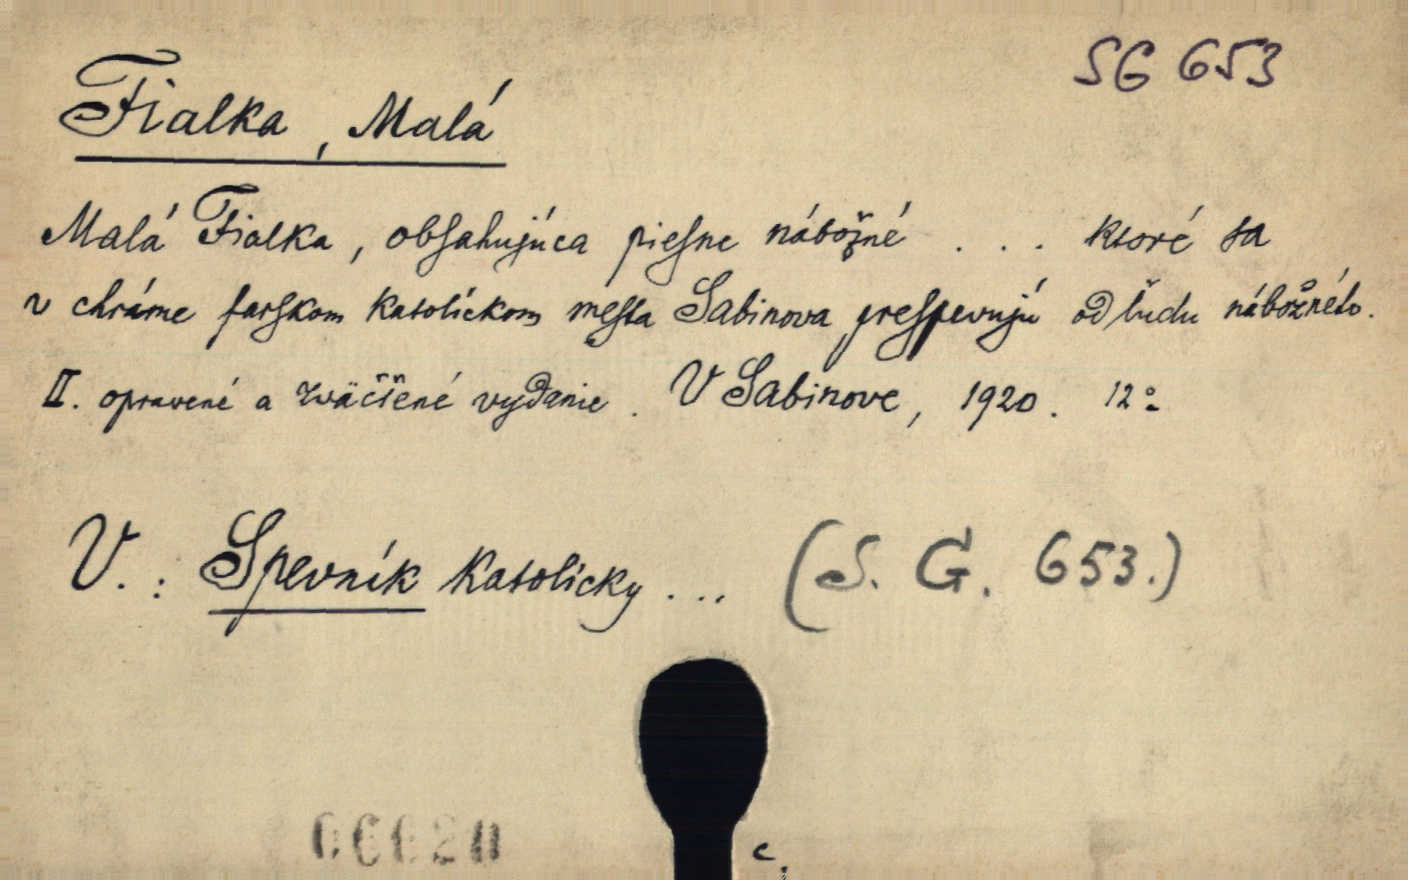 SG 653
Fialka, Malá
Malá Fialka, obsahujúca piesne nábožné . . . ktoré sa
v chráme farskom katolíckom mesta Sabinova prespevujú od ľudu nábožného.
II. opravené a zwäčšené vydanie. V Sabinove, 1920. 12°
V.: Spevník katolícky ... (S. G. 653.)
c.